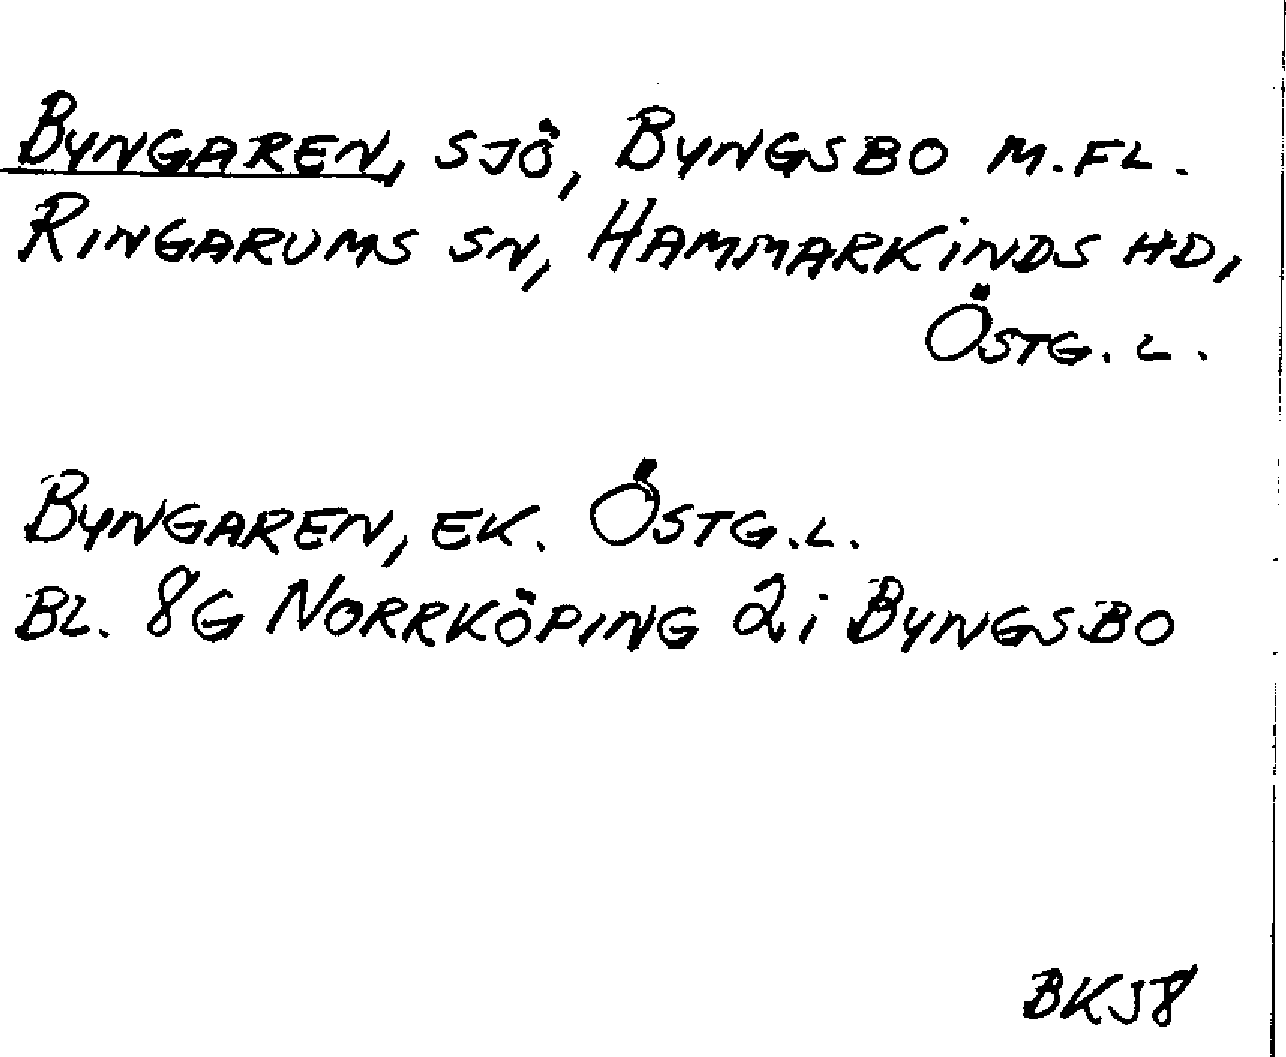 BYNGAREN, SJÖ, BYNGSBO M.FL.
RINGARUMS SN, HAMMARKINDS HD,
ÖSTG. L.
BYNGAREN, EK. ÖSTG.L.
BL. 8G NORRKÖPING 2i BYNGSBO
BKJ8